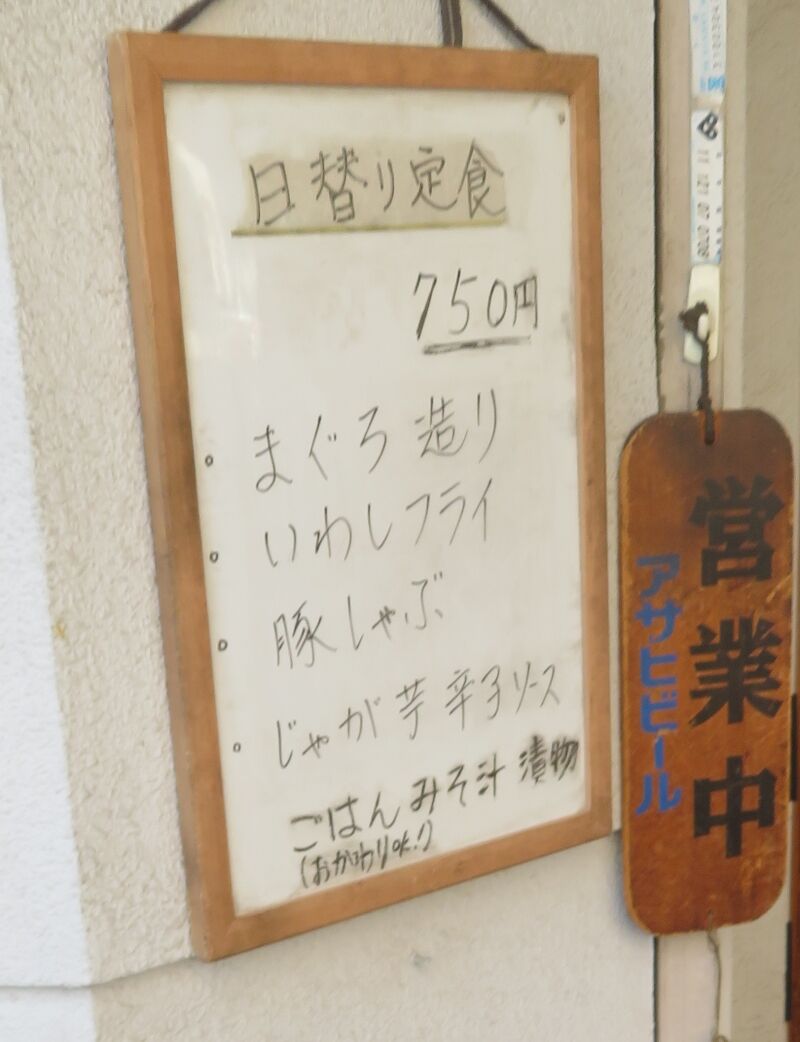 日替り定食
750円
。まぐろ 造り
。いわしフライ
。豚しゃぶ
。じゃが芋 辛子ソース
ごはん みそ汁 漬物
(おかわりOK!)
営業中
アサヒビール